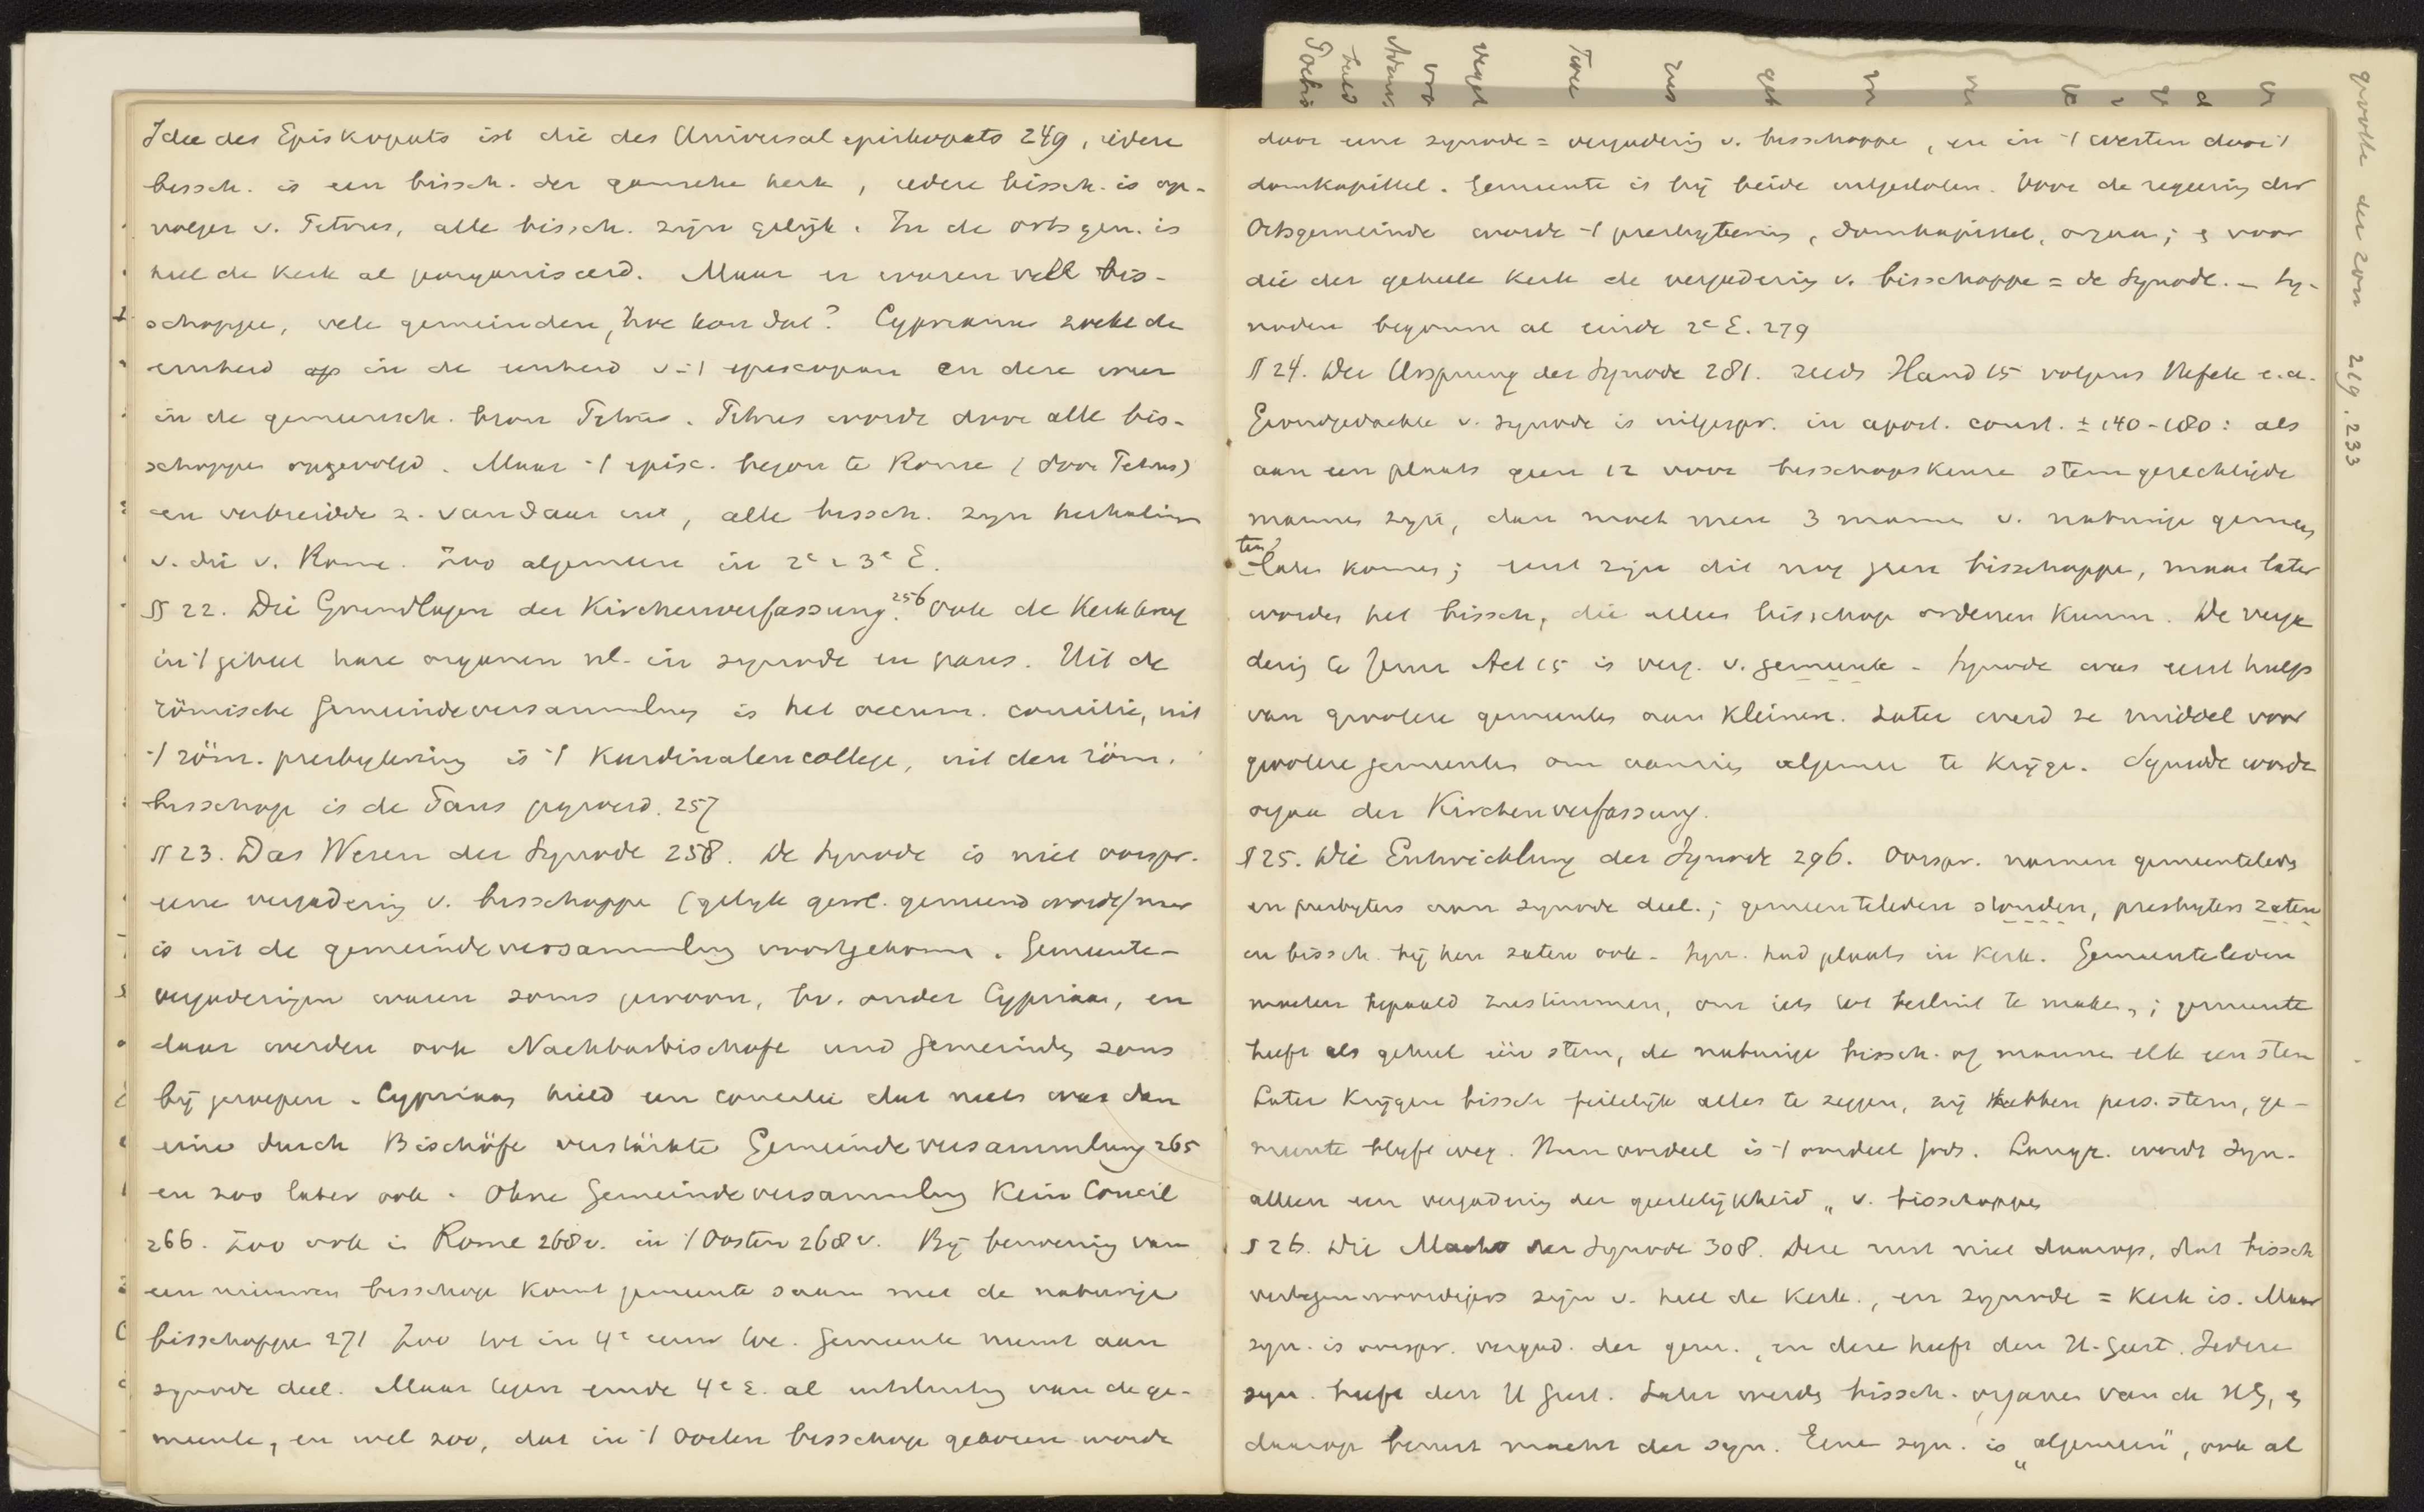 Idee des Episkopats ist die des Universalepiskopats 249, iedere
bissch. is een bissch. der gansche kerk, iedere bissch. is op-
volger v. Petrus, alle bissch. zijn gelijk. In de ortsgem. is
heel de kerk al georganiseerd. Maar er waren vele bis-
schoppen, vele gemeinden, hoe kon dat? Cyprianus zoekt de
eenheid op in de eenheid v-t episcopaat en deze weer
in de gemeensch. bron Petrus. Petrus wordt door alle bis-
schoppen opgevolgd. Maar -t episc. begon te Rome (door Petrus)
en verbreidde z. vandaar uit, alle bissch. zijn herhaling
v. die v. Rome. Zoo algemeen in 2e & 3e E.
§ 22. Die Grundlagen der Kirchenverfassung. 256 Ook de Kerk kreeg
in 't geheel hare organen nl. in synode en paus. Uit de
römische Gemeindeversammlung is het oecum. concilie, uit
-t röm. presbyterium is -t Kardinalencollege, uit den röm.
bisschop is de Paus gegroeid. 257
§ 23. Das Wesen der Synode 258. De synode is niet oorspr.
eene vergadering v. bisschoppen (gelijk gew. gemeend wordt) maar
is uit de gemeindeversammlung voortgekomen. Gemeente-
vergaderingen waren soms gewoon, bv. onder Cyprian, en
daar werden ook Nachbarbischofe und Gemeinden soms
bij geroepen. Cyprianus hield een concilie dat niets was dan
eine durch Bischöfe verstärkte Gemeindeversammlung 265
en zoo later ook. Ohne Gemeindeversammlung Kein Concil
266. Zoo ook in Rome 268v. in 't Oosten 268v. Bij benoeming van
een nieuwen bisschop komt gemeente saam met de naburige
bisschoppen 271 Zoo tot in 4e eeuw toe. Gemeente neemt aan
synode deel. Maar tegen einde 4e E. al uitsluiting van de ge-
meente, en wel zoo, dat in -t Oosten bisschop gekozen wordt
door eene synode = vergadering v. bisschoppen, en in -t westen door -t
domkapittel. Gemeente is bij beide uitgesloten. Voor de regeering der
Ortsgemeinde wordt -t presbyterium, domkapittel, orgaan; en voor
die der geheele kerk de vergadering v. bisschoppen = de Synode. - Sy-
noden begonnen al einde 2e E. 279
§ 24. Der Ursprung der Synode 281. reeds Hand 15 volgens Hefele e.a.
Grondgedachte v. synode is uitgespr. in apost. const. ± 140-180: als
aan een plaats geen 12 voor bisschopskeuze stemgerechtigde
mannen zijn, dan moet men 3 mannen v. naburige gemeen
ten laten komen; eerst zijn dit nog geen bisschoppen, maar later
worden het bissch, die alleen bisschop ordenen kunnen. De verga
dering te Jeruz Act 15 is verg. v. gemeente - Synode was eerst hulp
van grootere gemeenten aan kleinere. Later werd ze middel voor
grootere gemeenten om aanzien algemeen te krijgen. Synode wordt
orgaan der Kirchenverfassung.
§ 25. Die Entwicklung der Synode 296. Oorspr. namen gemeenteleden
en presbyters aan synode deel.; gemeenteleden stonden, presbyters zaten
en bissch. bij hen zaten ook. Syn. had plaats in Kerk. Gemeenteleden
moeten bepaald zustimmen, om iets tot besluit te maken,; gemeente
heeft als geheel één stem, de naburige bissch. of mannen elk een stem
Later krijgen bissch feitelijk alles te zeggen, zij hebben pers. stem, ge-
meente blijft weg. Hun oordeel is -t oordeel Gods. Langz. wordt Syn.
alleen een vergadering der geestelijkheid „ v. bisschoppen
§ 26. Die Macht der Synode 308. Deze rust niet daarop, dat bissch
vertegenwoordigers zijn v. heel de Kerk., en synode = Kerk is. Maar
syn. is oorspr. vergad. der gem., en deze heeft den H. Geest. Iedere
syn. heeft den H Geest. Later werden bissch. organen van de HG, en
daarop berust macht der syn. Eene syn. is „algemeen", ook al
grootte der zon 219.233